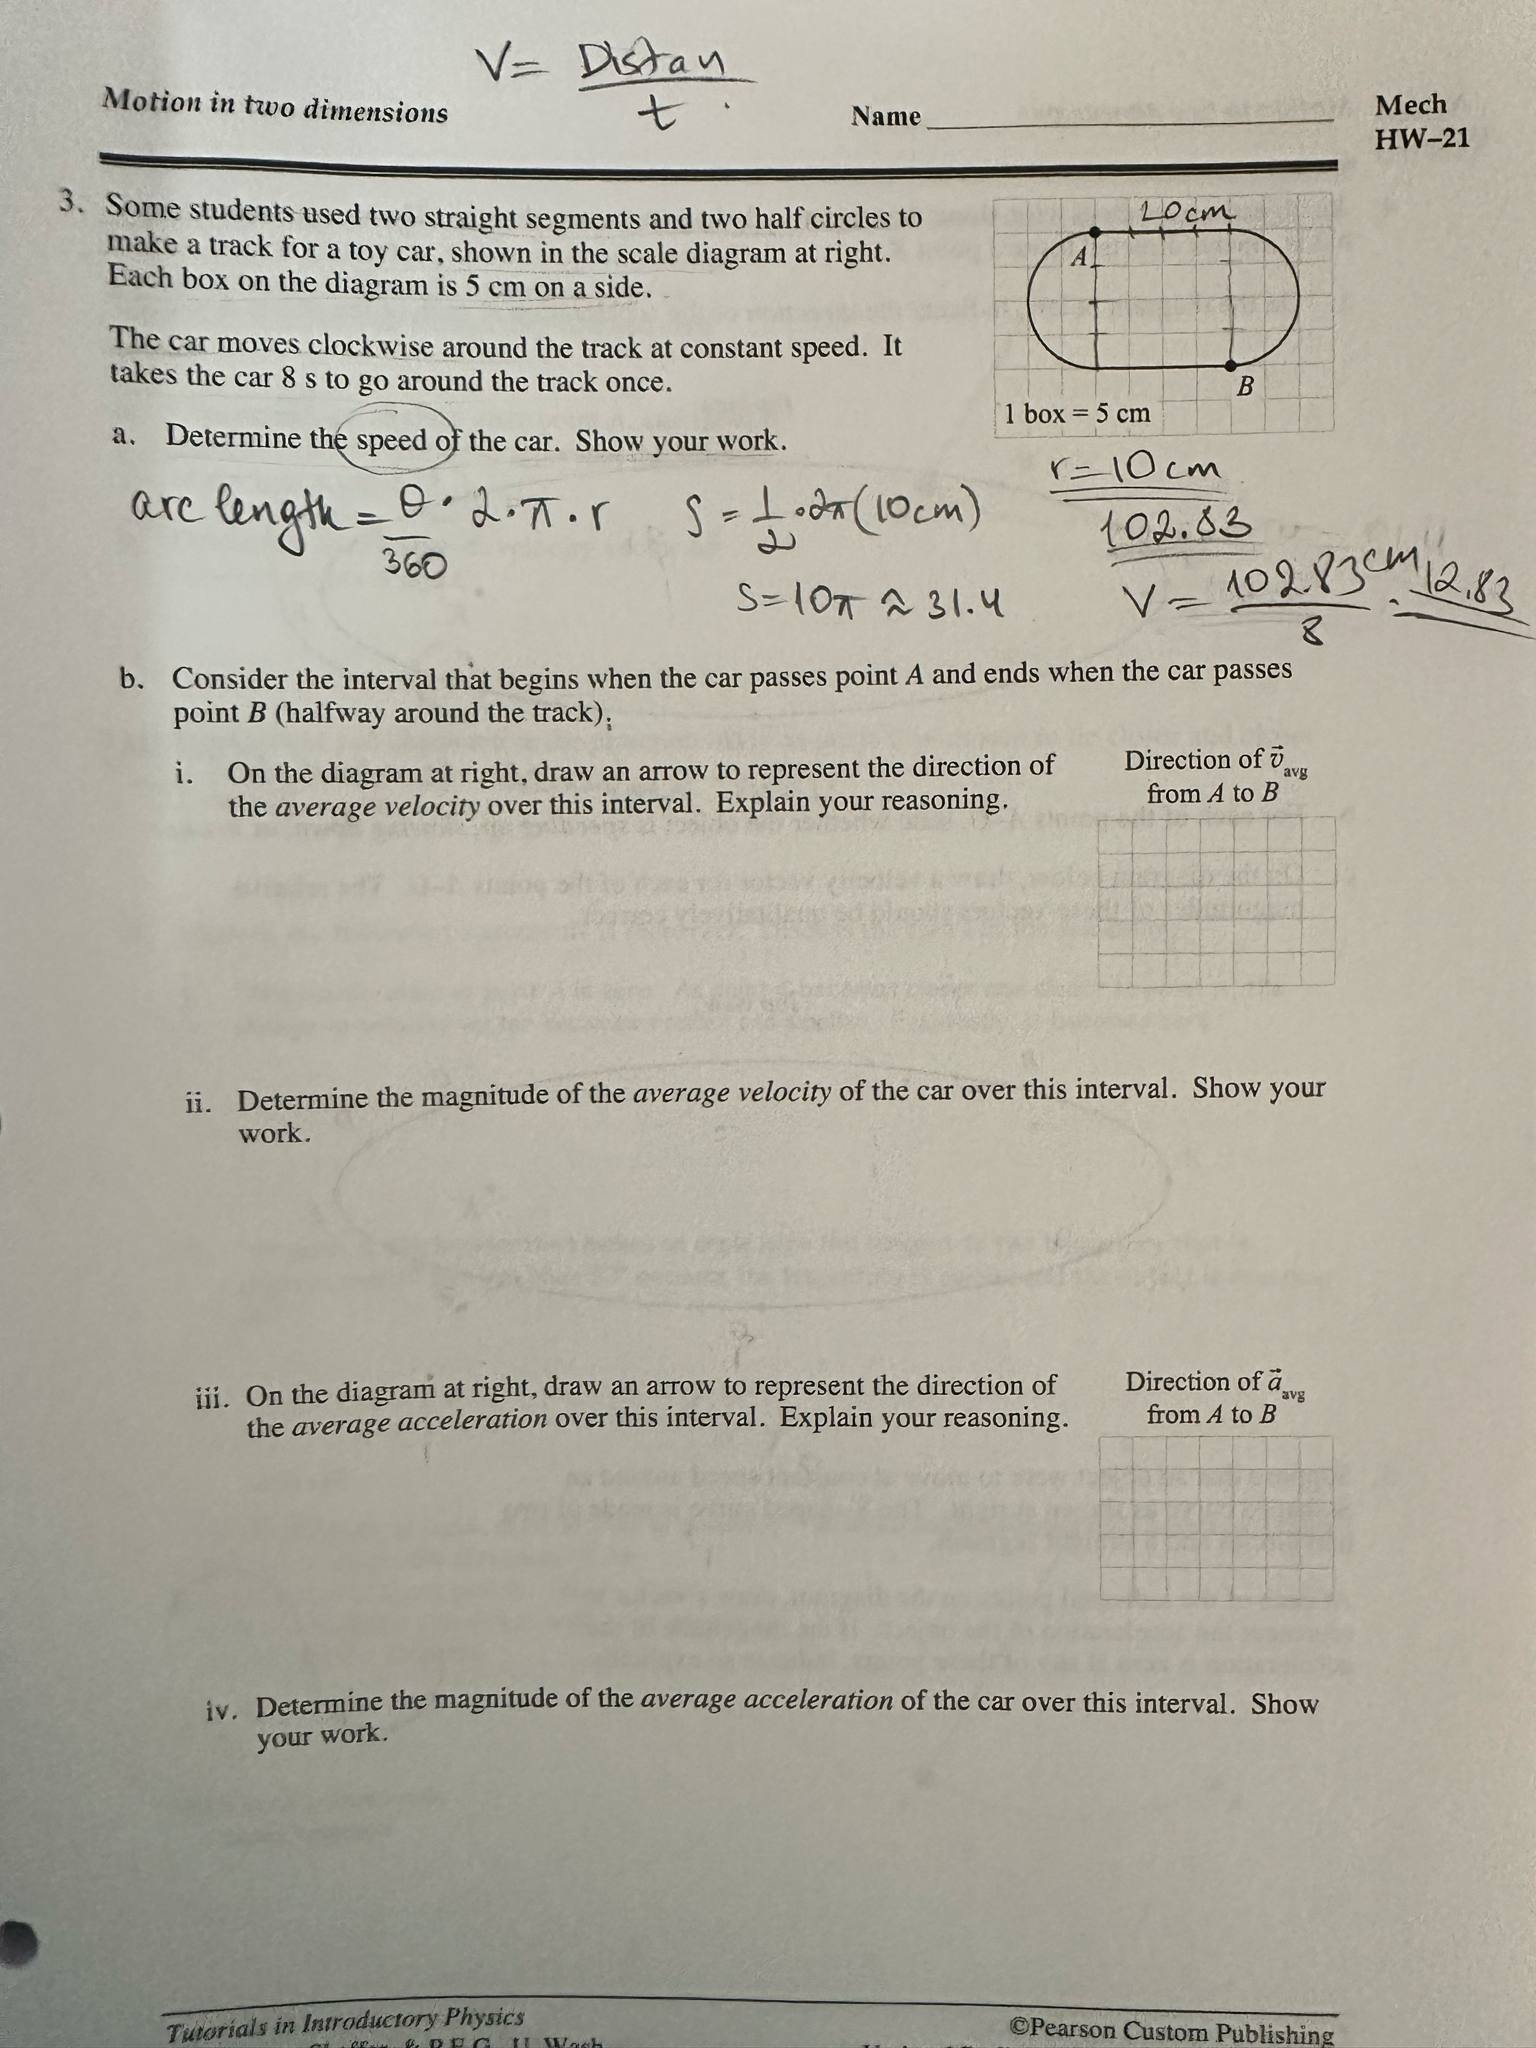 V = Distan
t
Motion in two dimensions
Name
Mech
HW–21
3. Some students used two straight segments and two half circles to
make a track for a toy car, shown in the scale diagram at right.
Each box on the diagram is 5 cm on a side.
The car moves clockwise around the track at constant speed. It
takes the car 8 s to go around the track once.
20cm
A
B
1 box = 5 cm
a. Determine the speed of the car. Show your work.
arc length = θ/360 · 2 · π · r
S = 1/2 · 2π (10cm)
S = 10π ≈ 31.4
r = 10 cm
102.83
V = 102.83 cm / 8 = 12.83
b. Consider the interval that begins when the car passes point A and ends when the car passes
point B (halfway around the track).
i. On the diagram at right, draw an arrow to represent the direction of
the average velocity over this interval. Explain your reasoning.
Direction of v⃗avg
from A to B
ii. Determine the magnitude of the average velocity of the car over this interval. Show your
work.
iii. On the diagram at right, draw an arrow to represent the direction of
the average acceleration over this interval. Explain your reasoning.
Direction of a⃗avg
from A to B
iv. Determine the magnitude of the average acceleration of the car over this interval. Show
your work.
Tutorials in Introductory Physics
©Pearson Custom Publishing